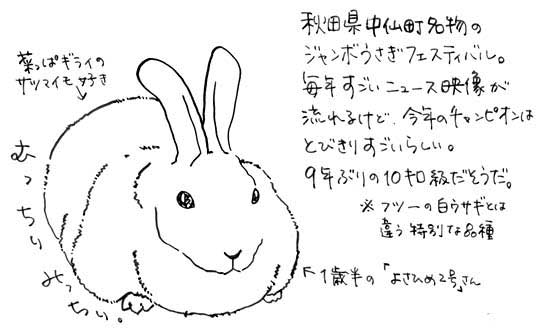 秋田県中仙町名物の
ジャンボうさぎフェスティバル。
毎年すごいニュース映像が
流れるけど、今年のチャンピオンは
とびきりすごいらしい。
9年ぶりの10キロ級だそうだ。
※フツーの白ウサギとは
違う特別な品種
↖1歳半の「よさひめ2号」さん
菜っぱギライの
サツマイモ好き
むっちり
みっちい。